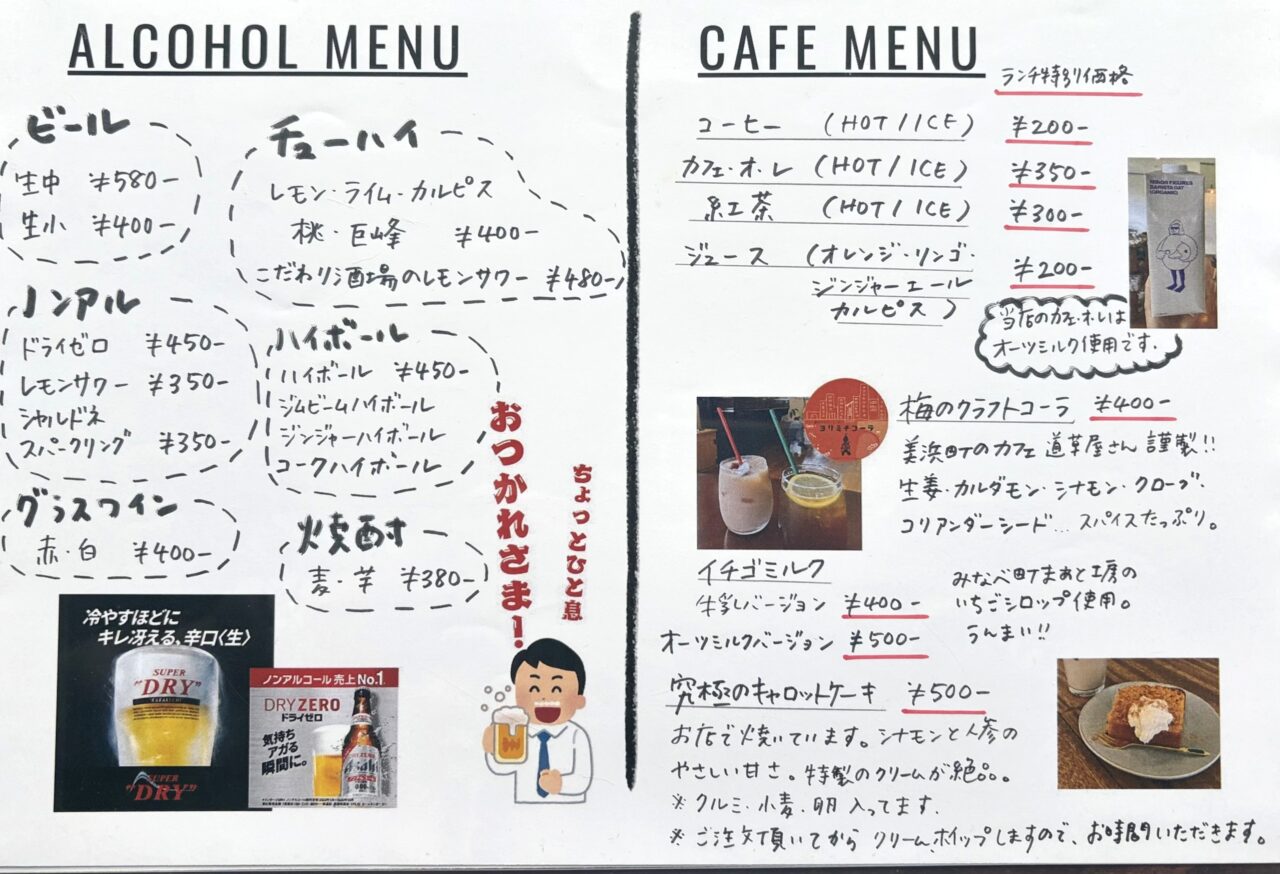 ALCOHOL MENU
ビール
生中 ¥580-
生小 ¥400-
チューハイ
レモン・ライム・カルピス
桃・巨峰 ¥400-
こだわり酒場のレモンサワー ¥480-
ノンアル
ドライゼロ ¥450-
レモンサワー ¥350-
シャルドネ
スパークリング ¥350-
ハイボール
ハイボール ¥450-
ジムビームハイボール
ジンジャーハイボール
コークハイボール
グラスワイン
赤・白 ¥400-
焼酎
麦・芋 ¥380-
ちょっとひと息
おつかれさま!
冷やすほどに
キレ冴える、辛口〈生〉
SUPER
"DRY"
KARAKUCHI
SUPER
"DRY"
ノンアルコール売上No.1
DRY ZERO
ドライゼロ
気持ち
アガる
瞬間に。
Asahi
0.00
CAFE MENU
ランチ特別価格
コーヒー (HOT/ICE) ¥200-
カフェ・オ・レ (HOT/ICE) ¥350-
紅茶 (HOT/ICE) ¥300-
ジュース (オレンジ・リンゴ・
ジンジャーエール
カルピス) ¥200-
MINOR FIGURES
BARISTA OAT
(ORGANIC)
当店のカフェ・オ・レは
オーツミルク使用です.
ヨリミチコーラ
梅のクラフトコーラ ¥400-
美浜町のカフェ 道草屋さん 謹製!!
生姜・カルダモン・シナモン・クローブ、
コリアンダーシード…スパイスたっぷり。
イチゴミルク
牛乳バージョン ¥400-
オーツミルクバージョン ¥500-
みなべ町まぁと工房の
いちごシロップ使用。
うんまい!!
究極のキャロットケーキ ¥500-
お店で焼いています。シナモンと人参の
やさしい甘さ。特製のクリームが絶品。
※クルミ・小麦・卵 入ってます.
※ご注文頂いてから クリーム、ホイップしますので、お時間いただきます。